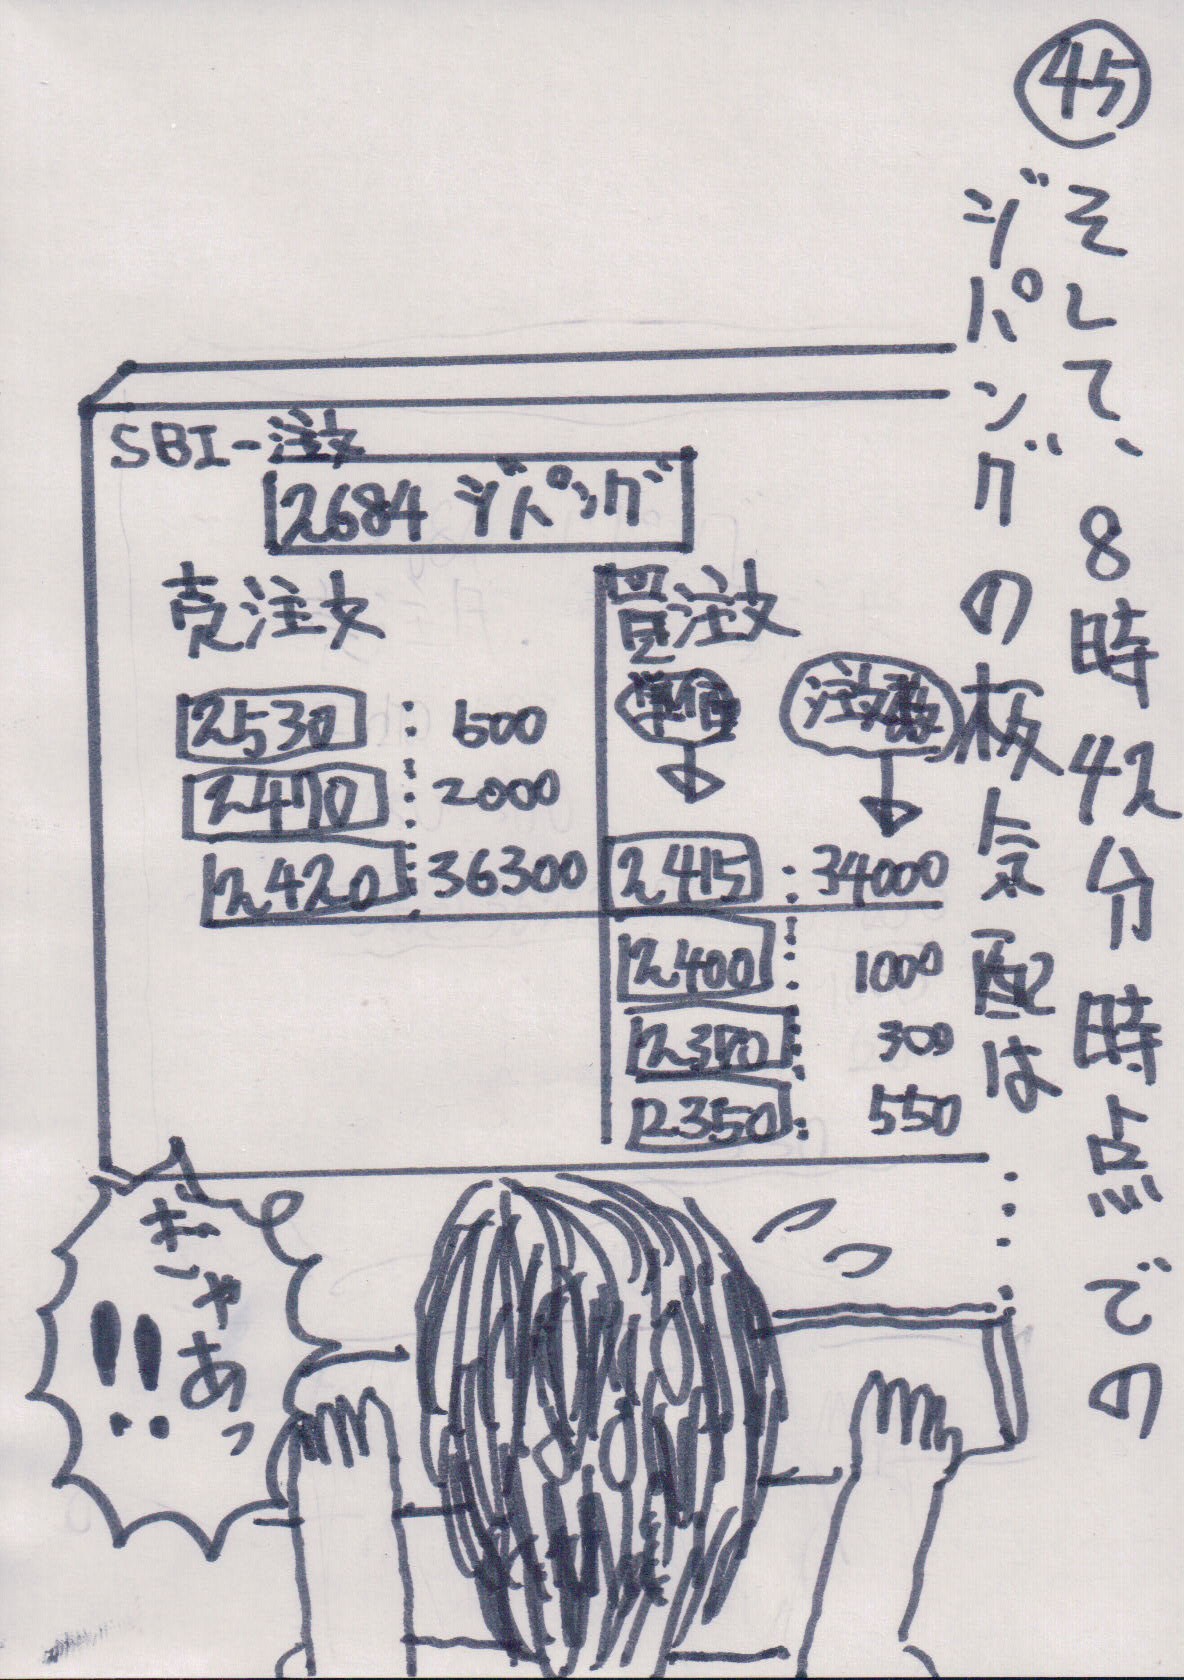 ㊺
そして、8時42分時点での
ジパングの板気配は……
SBI-注文
2684 ジパング
売注文
2530 : 600
2470 : 2000
2420 : 36300
買注文
単価
注文数
2415 : 34000
2400 : 1000
2370 : 300
2350 : 550
ぎゃあっ!!